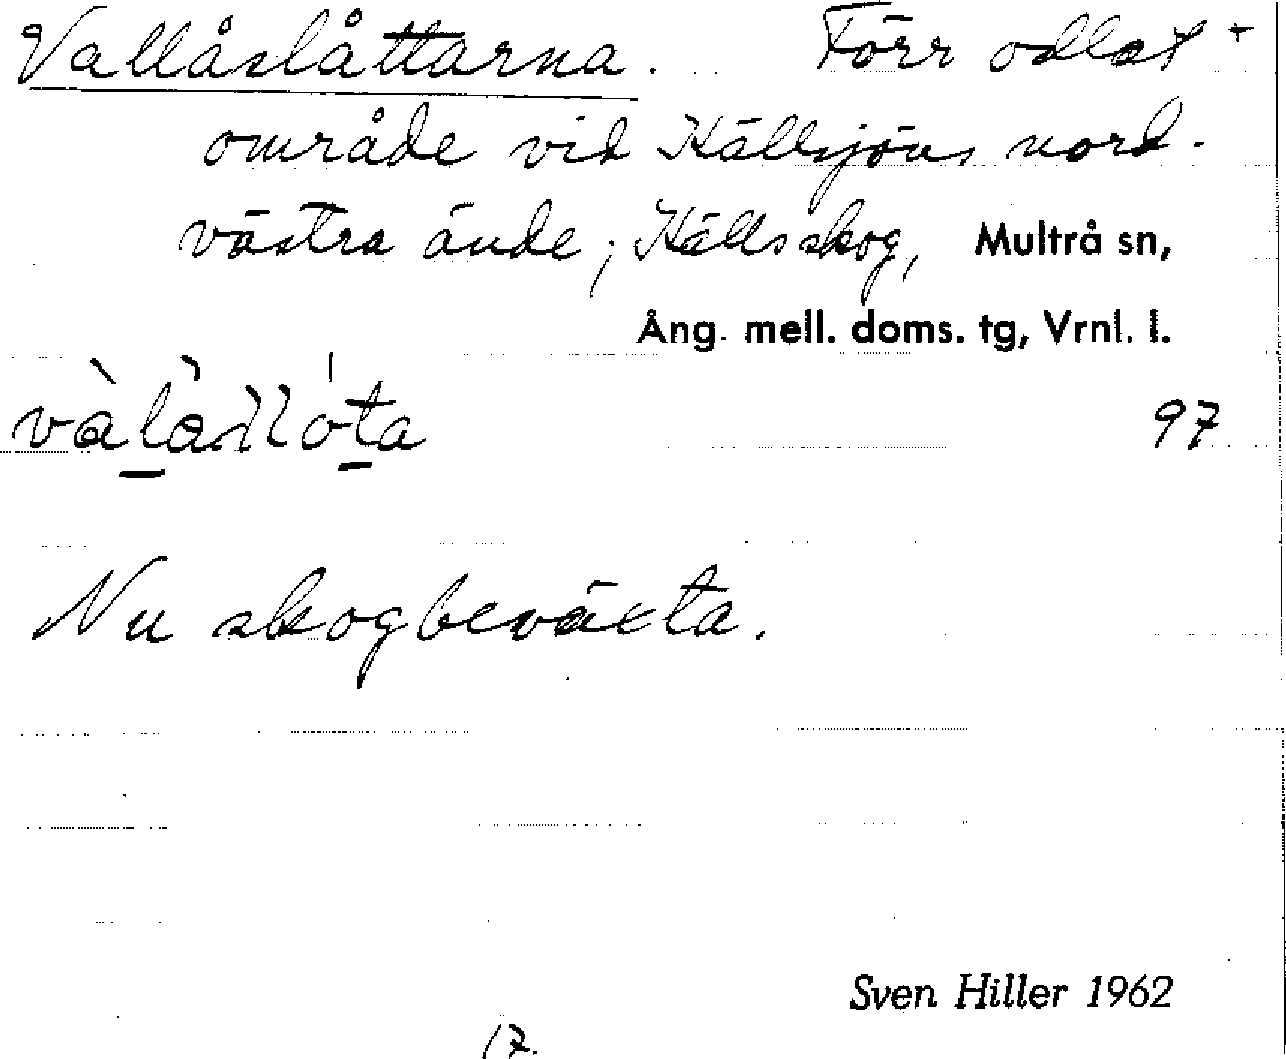 Vallåslåttarna. Förr odlat +
område vid Hällsjöns nord-
västra ände; Hällsskog, Multrå sn,
Ång. mell. doms. tg, Vrnl. l.
97
Nu skogbeväxta.
Sven Hiller 1962
17.